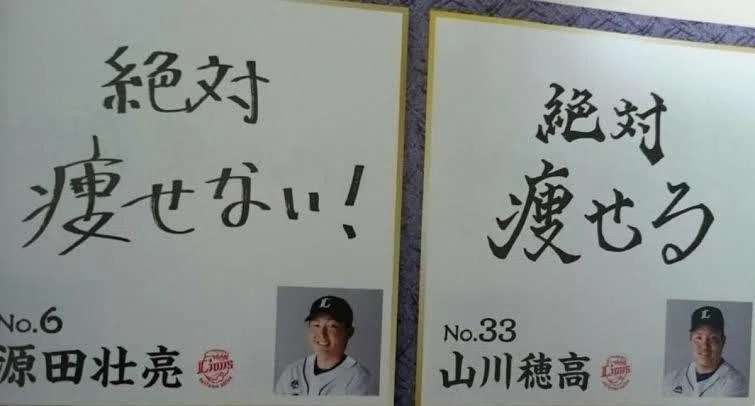 絶対
痩せない!
No.6
源田壮亮
Lions
絶対
痩せる
No.33
山川穂高
Lions